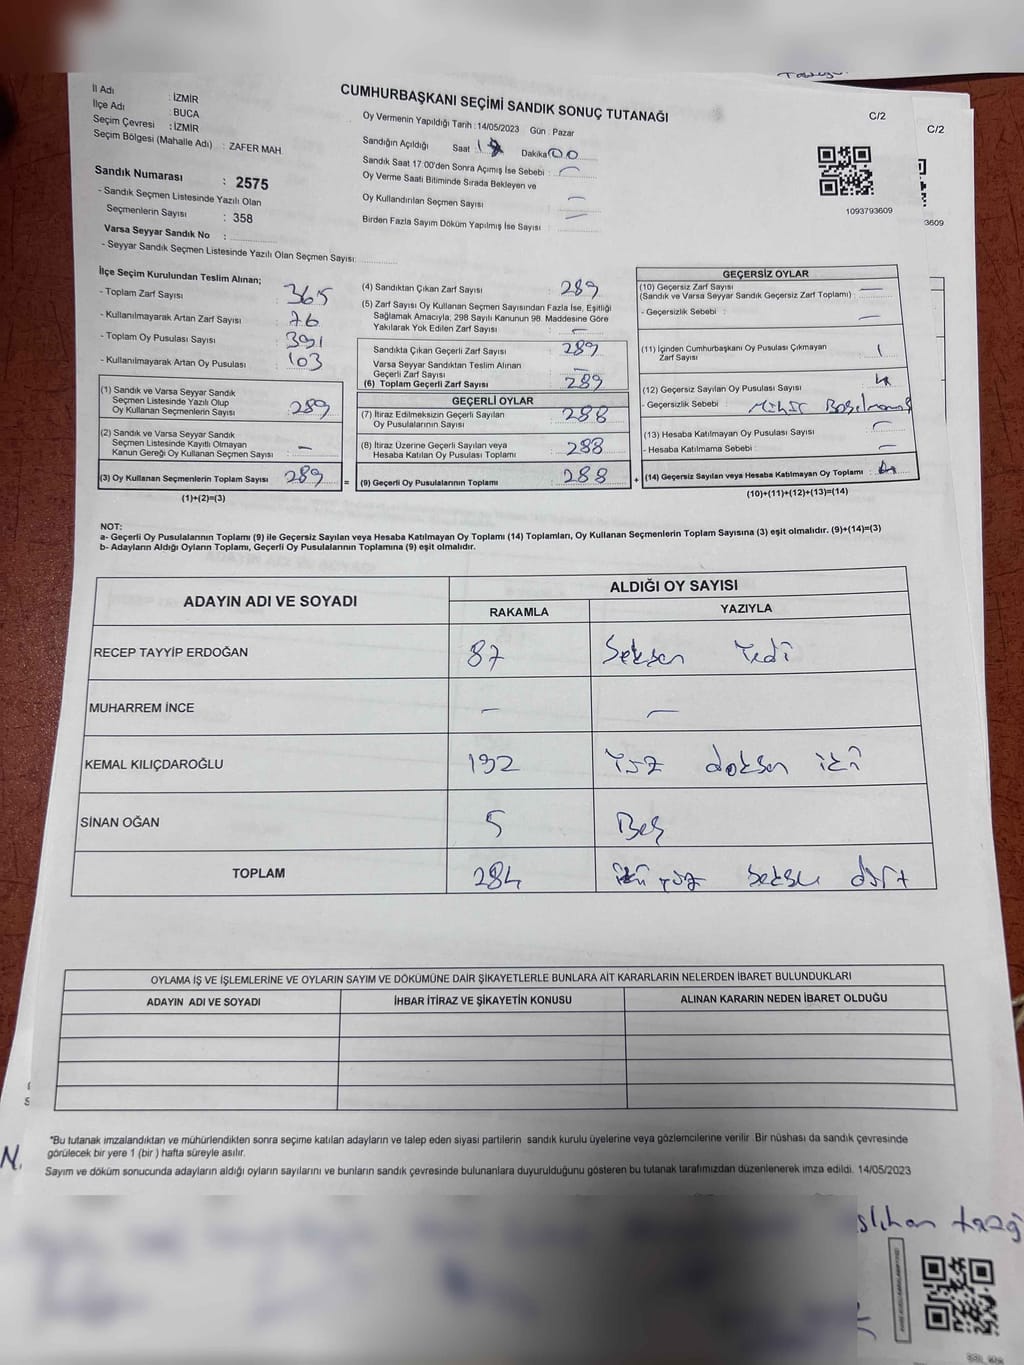 İl Adı : İZMİR
İlçe Adı : BUCA
Seçim Çevresi : İZMİR
Seçim Bölgesi (Mahalle Adı) : ZAFER MAH.
Sandık Numarası : 2575
- Sandık Seçmen Listesinde Yazılı Olan
Seçmenlerin Sayısı : 358
Varsa Seyyar Sandık No :
- Seyyar Sandık Seçmen Listesinde Yazılı Olan Seçmen Sayısı:
CUMHURBAŞKANI SEÇİMİ SANDIK SONUÇ TUTANAĞI
Oy Vermenin Yapıldığı Tarih : 14/05/2023 Gün : Pazar
Sandığın Açıldığı Saat : Dakika : 00
Sandık Saat 17:00'den Sonra Açımış İse Sebebi : —
Oy Verme Saati Bitiminde Sırada Bekleyen ve
Oy Kullandırılan Seçmen Sayısı : —
Birden Fazla Sayım Döküm Yapılmış İse Sayısı : —
C/2
C/2
1093793609
3609
İlçe Seçim Kurulundan Teslim Alınan;
- Toplam Zarf Sayısı : 365
- Kullanılmayarak Artan Zarf Sayısı : 76
- Toplam Oy Pusulası Sayısı : 391
- Kullanılmayarak Artan Oy Pusulası : 103
(1) Sandık ve Varsa Seyyar Sandık
Seçmen Listesinde Yazılı Olup
Oy Kullanan Seçmenlerin Sayısı : 289
(2) Sandık ve Varsa Seyyar Sandık
Seçmen Listesinde Kayıtlı Olmayan
Kanun Gereği Oy Kullanan Seçmen Sayısı : —
(3) Oy Kullanan Seçmenlerin Toplam Sayısı : 289 =
(1)+(2)=(3)
(4) Sandıktan Çıkan Zarf Sayısı : 289
(5) Zarf Sayısı Oy Kullanan Seçmen Sayısından Fazla İse, Eşitliği
Sağlamak Amacıyla, 298 Sayılı Kanunun 98. Maddesine Göre
Yakılarak Yok Edilen Zarf Sayısı : —
Sandıkta Çıkan Geçerli Zarf Sayısı : 289
Varsa Seyyar Sandıktan Teslim Alınan
Geçerli Zarf Sayısı : —
(6) Toplam Geçerli Zarf Sayısı : 289
GEÇERLİ OYLAR
(7) İtiraz Edilmeksizin Geçerli Sayılan
Oy Pusulalarının Sayısı : 288
(8) İtiraz Üzerine Geçerli Sayılan veya
Hesaba Katılan Oy Pusulası Toplamı : 288
(9) Geçerli Oy Pusulalarının Toplamı : 288 +
GEÇERSİZ OYLAR
(10) Geçersiz Zarf Sayısı
(Sandık ve Varsa Seyyar Sandık Geçersiz Zarf Toplamı) : —
- Geçersizlik Sebebi : —
(11) İçinden Cumhurbaşkanı Oy Pusulası Çıkmayan
Zarf Sayısı : 1
(12) Geçersiz Sayılan Oy Pusulası Sayısı : 4
- Geçersizlik Sebebi : Mühür
(13) Hesaba Katılmayan Oy Pusulası Sayısı : —
- Hesaba Katılmama Sebebi : —
(14) Geçersiz Sayılan veya Hesaba Katılmayan Oy Toplamı : 4
(10)+(11)+(12)+(13)=(14)
NOT:
a- Geçerli Oy Pusulalarının Toplamı (9) ile Geçersiz Sayılan veya Hesaba Katılmayan Oy Toplamı (14) Toplamları, Oy Kullanan Seçmenlerin Toplam Sayısına (3) eşit olmalıdır. (9)+(14)=(3)
b- Adayların Aldığı Oyların Toplamı, Geçerli Oy Pusulalarının Toplamına (9) eşit olmalıdır.
ADAYIN ADI VE SOYADI
ALDIĞI OY SAYISI
RAKAMLA YAZIYLA
RECEP TAYYİP ERDOĞAN 87 Seksen Yedi
MUHARREM İNCE — —
KEMAL KILIÇDAROĞLU 192 Yüz doksan iki
SİNAN OĞAN 5 Beş
TOPLAM 284 iki yüz seksen dört
OYLAMA İŞ VE İŞLEMLERİNE VE OYLARIN SAYIM VE DÖKÜMÜNE DAİR ŞİKAYETLERLE BUNLARA AİT KARARLARIN NELERDEN İBARET BULUNDUKLARI
ADAYIN ADI VE SOYADI İHBAR İTİRAZ VE ŞİKAYETİN KONUSU ALINAN KARARIN NEDEN İBARET OLDUĞU
*Bu tutanak imzalandıktan ve mühürlendikten sonra seçime katılan adayların ve talep eden siyasi partilerin sandık kurulu üyelerine veya gözlemcilerine verilir. Bir nüshası da sandık çevresinde
görülecek bir yere 1 (bir ) hafta süreyle asılır.
Sayım ve döküm sonucunda adayların aldığı oyların sayılarını ve bunların sandık çevresinde bulunanlara duyurulduğunu gösteren bu tutanak tarafımızdan düzenlenerek imza edildi. 14/05/2023
N.